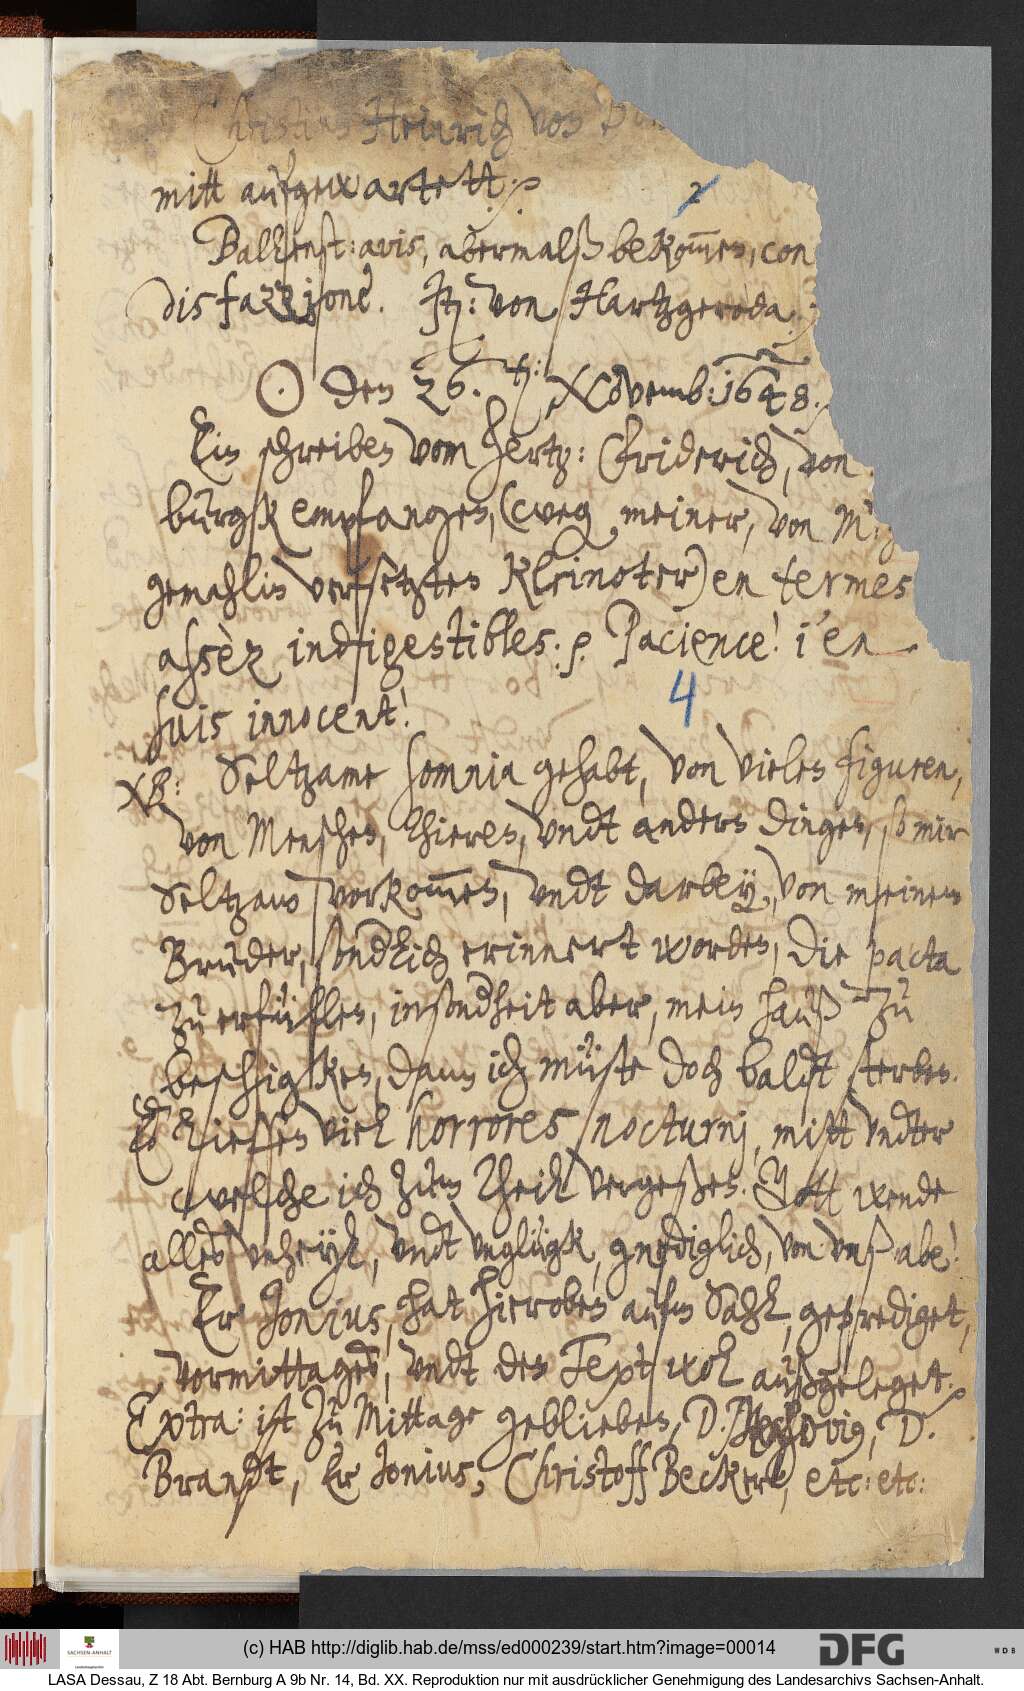 Christian Heinrich von
mitt aufgewartett.
2
Ballenst: avis, abermalß bekom̅en, con
disfazzione. Jt: von Hartzgeroda.
⊙ den 26. t: Novemb: 1648.
Ein schreiben vom Hertz: Friderich, von
burgk empfangen, (weg meiner, von
gemahlin versetzten Kleinoter) en termes
assèz indigestibles. p. Pacience! i'en
suis innocent!
4
NB: Seltzame somnia gehabt, von vielen figuren,
von Menschen, thieren, undt andern dingen, so mir
Seltzam vorkom̅en, undt darbey, von meinem
Bruder, sendlich erinnert worden, die pacta
zu erfüllen, insonderheit aber, mein hauß zu
beschigken, dann ich müste doch baldt sterben.
Es ließen viel horrores nocturnj, mitt undter
welche ich zum theil vergeßen. Gott wende
alles unheyl, undt unglügk, gnediglich, von unß abe!
Er Jonius, hat hieroben aufm Sahl, geprediget,
vormittages, undt den Text wol außgeleget.
Extra: ist zu Mittage geblieben, D. Mechovius, D.
Brandt, Er Jonius, Christoff Beckerl, etc: etc:
SACHSEN-ANHALT
(c) HAB http://diglib.hab.de/mss/ed000239/start.htm?image=00014
DFG
WDB
LASA Dessau, Z 18 Abt. Bernburg A 9b Nr. 14, Bd. XX. Reproduktion nur mit ausdrücklicher Genehmigung des Landesarchivs Sachsen-Anhalt.